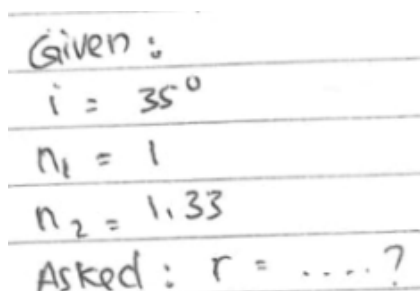 Given :
i = 35°
n₁ = 1
n₂ = 1.33
Asked : r = ....?